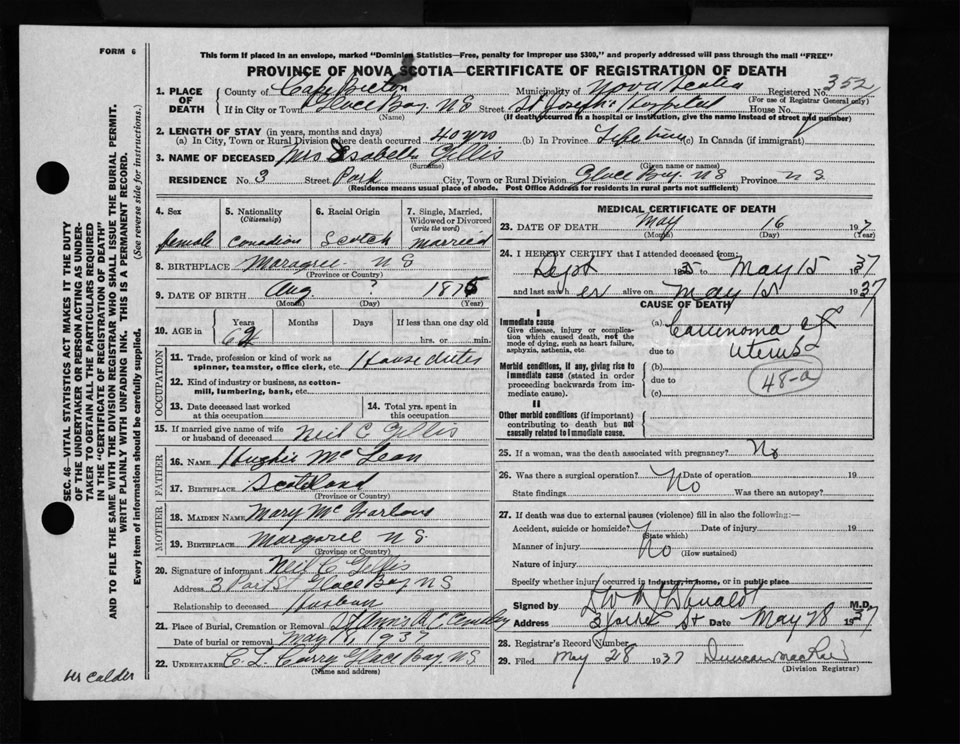 FORM 6
This form if placed in an envelope, marked "Dominion Statistics—Free, penalty for improper use $300," and properly addressed will pass through the mail "FREE"
PROVINCE OF NOVA SCOTIA—CERTIFICATE OF REGISTRATION OF DEATH
1. PLACE OF DEATH
County of Cape Breton Municipality of Nova Scotia Registered No. 352
(For use of Registrar General only)
If in City or Town Glace Bay. N S Street St Josephs Hospital House No.
(Name) (If death occurred in a hospital or institution, give the name instead of street and number)
2. LENGTH OF STAY (in years, months and days)
(a) In City, Town or Rural Division where death occurred 40 yrs (b) In Province Life time (c) In Canada (if immigrant)
3. NAME OF DECEASED Mrs Isabella Gillis
(Surname) (Given name or names)
RESIDENCE No. 3 Street Park City, Town or Rural Division Glace Bay. N S Province N S
(Residence means usual place of abode. Post Office Address for residents in rural parts not sufficient)
4. Sex female
5. Nationality (Citizenship) Canadian
6. Racial Origin Scotch
7. Single, Married, Widowed or Divorced (write the word) married
8. BIRTHPLACE Maragree N S
(Province or Country)
9. DATE OF BIRTH Aug ? 1875
(Month) (Day) (Year)
10. AGE in Years Months Days If less than one day old
62 hrs. or min.
OCCUPATION
11. Trade, profession or kind of work as spinner, teamster, office clerk, etc. House duties
12. Kind of industry or business, as cotton-mill, lumbering, bank, etc.
13. Date deceased last worked at this occupation
14. Total yrs. spent in this occupation
15. If married give name of wife or husband of deceased Neil C Gillis
FATHER
16. NAME Hughie McLean
17. BIRTHPLACE Scotland
(Province or Country)
MOTHER
18. MAIDEN NAME Mary McFarlane
19. BIRTHPLACE Margaree N S.
(Province or Country)
20. Signature of informant Neil C Gillis
Address 3 Park St Glace Bay. N S
Relationship to deceased Husban
21. Place of Burial, Cremation or Removal St Anns R C Cemetery
Date of burial or removal May 18, 1937
22. UNDERTAKER C. L. Curry Glace Bay N S
(Name and address)
MEDICAL CERTIFICATE OF DEATH
23. DATE OF DEATH May 16 1937
(Month) (Day) (Year)
24. I HEREBY CERTIFY that I attended deceased from:
Sept 1935 to May 15 1937
and last saw her alive on May 15 1937
CAUSE OF DEATH
I
Immediate cause
Give disease, injury or complication which caused death, not the mode of dying, such as heart failure, asphyxia, asthenia, etc.
(a) Carcinoma of
due to uterus
Morbid conditions, if any, giving rise to immediate cause (stated in order proceeding backwards from immediate cause).
(b)
due to 48-a
(c)
II
Other morbid conditions (if important) contributing to death but not causally related to immediate cause.
25. If a woman, was the death associated with pregnancy? No
26. Was there a surgical operation? No Date of operation 19
State findings Was there an autopsy?
27. If death was due to external causes (violence) fill in also the following:—
Accident, suicide or homicide? Date of injury 19
(State which)
Manner of injury No (How sustained)
Nature of injury
Specify whether injury occurred in industry, in home, or in public place
Signed by McDonald M.D.
Address St Date May 28 1937
28. Registrar's Record Number
29. Filed May 28 1937 Duncan MacRae
(Division Registrar)
SEC. 46—VITAL STATISTICS ACT MAKES IT THE DUTY
OF THE UNDERTAKER OR PERSON ACTING AS UNDER-
TAKER TO OBTAIN ALL THE PARTICULARS REQUIRED
IN THE "CERTIFICATE OF REGISTRATION OF DEATH"
AND TO FILE THE SAME WITH THE DIVISION REGISTRAR WHO SHALL ISSUE THE BURIAL PERMIT.
WRITE PLAINLY WITH UNFADING INK. THIS IS A PERMANENT RECORD.
Every item of information should be carefully supplied. (See reverse side for instructions.)
calder